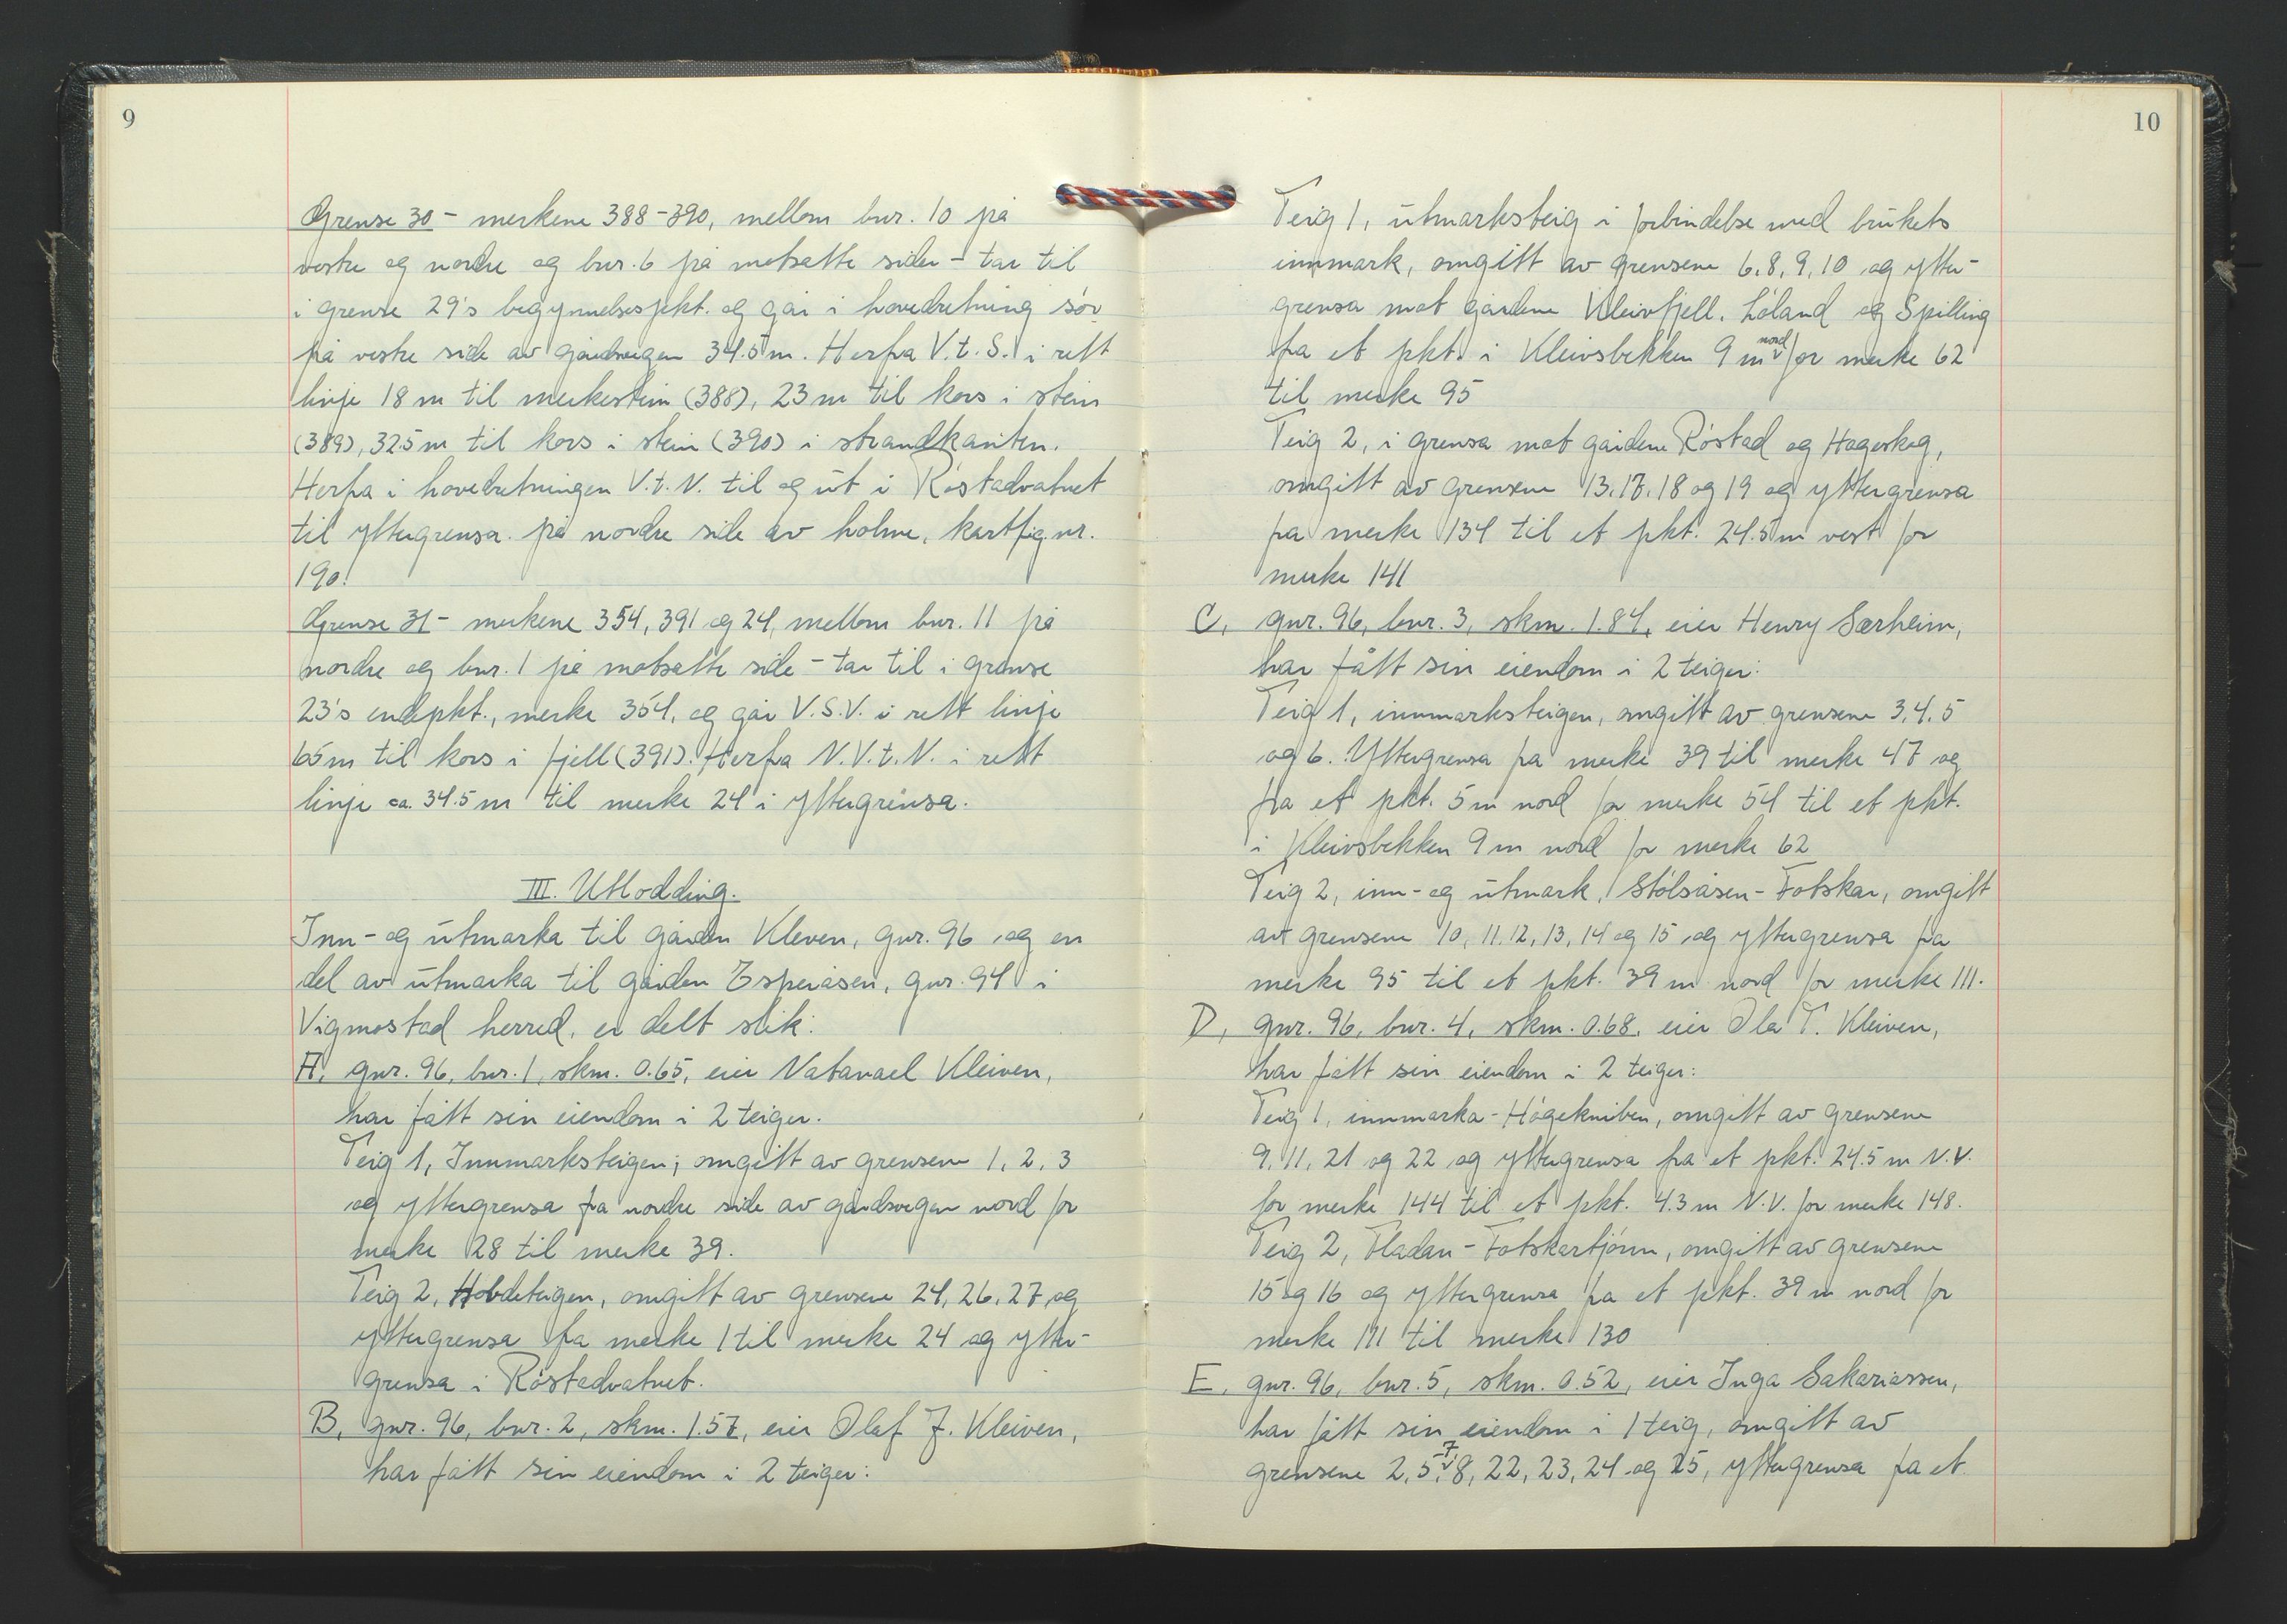 9
Grense 30 - merkene 388-390, mellom bnr. 10 på
vestre og nordre og bnr. 6 på motsatte sider - tar til
i grense 29's begynnelsespkt. og går i hovedretning sør
på vestre side av gårdsvegen 34.5 m. Herfra V.t.S. i rett
linje 18 m til merkestein (388), 23 m til kors i stein
(389), 32.5 m til kors i stein (390) i strandkanten.
Herfra i hovedretningen V.t.N. til og ut i Røstadvatnet
til yttergrensa på nordre side av holme, kartfig.nr.
190.
Grense 31 - merkene 354, 391 og 24, mellom bnr. 11 på
nordre og bnr. 1 på motsatte side - tar til i grense
23's endepkt., merke 354, og går V.S.V. i rett linje
65 m til kors i fjell (391). Herfra N.V.t.N. i rett
linje ca. 34.5 m til merke 24 i yttergrensa.
III. Utlodding.
Inn- og utmarka til gården Kleven, gnr. 96 og en
del av utmarka til gården Esperåsen, gnr. 94 i
Vigmostad herred, er delt slik:
A, gnr. 96, bnr. 1, skm. 0.65, eier Natanael Kleiven,
har fått sin eiendom i 2 teiger.
Teig 1, Innmarksteigen; omgitt av grensene 1, 2, 3
og yttergrensa fra nordre side av gårdsvegen nord for
merke 28 til merke 39.
Teig 2, Hovdeteigen, omgitt av grensene 24, 26, 27 og
yttergrensa fra merke 1 til merke 24 og ytter-
grensa i Røstadvatnet.
B, gnr. 96, bnr. 2, skm. 1.57, eier Olaf J. Kleiven,
har fått sin eiendom i 2 teiger:
10
Teig 1, utmarksteig i forbindelse med brukets
innmark, omgitt av grensene 6, 8, 9, 10 og ytter-
grensa mot gårdene Kleivfjell, Løland og Spilling
fra et pkt. i Kleivsbekken 9 m nord for merke 62
til merke 95
Teig 2, i grensa mot gårdene Røstad og Hageskog,
omgitt av grensene 13, 17, 18 og 19 og yttergrensa
fra merke 134 til et pkt. 24.5 m vest for
merke 141
C, gnr. 96, bnr. 3, skm. 1.84, eier Henry Særheim,
har fått sin eiendom i 2 teiger:
Teig 1, innmarksteigen, omgitt av grensene 3, 4, 5
og 6. Yttergrensa fra merke 39 til merke 47 og
fra et pkt. 5 m nord for merke 54 til et pkt.
i Kleivsbekken 9 m nord for merke 62
Teig 2, inn- og utmark, Stølsåsen - Fotskar, omgitt
av grensene 10, 11, 12, 13, 14 og 15 og yttergrensa fra
merke 95 til et pkt. 39 m nord for merke 111.
D, gnr. 96, bnr. 4, skm. 0.68, eier Ola T. Kleiven,
har fått sin eiendom i 2 teiger:
Teig 1, innmarka - Høgekniben, omgitt av grensene
9, 11, 21 og 22 og yttergrensa fra et pkt. 24.5 m N.V.
for merke 144 til et pkt. 4.3 m N.V. for merke 148.
Teig 2, Fladan - Fotskartjønn, omgitt av grensene
15 og 16 og yttergrensa fra et pkt. 39 m nord for
merke 111 til merke 130
E, gnr. 96, bnr. 5, skm. 0.52, eier Inga Sakariassen,
har fått sin eiendom i 1 teig, omgitt av
grensene 2, 5, 7, 8, 22, 23, 24 og 25, yttergrensa fra et